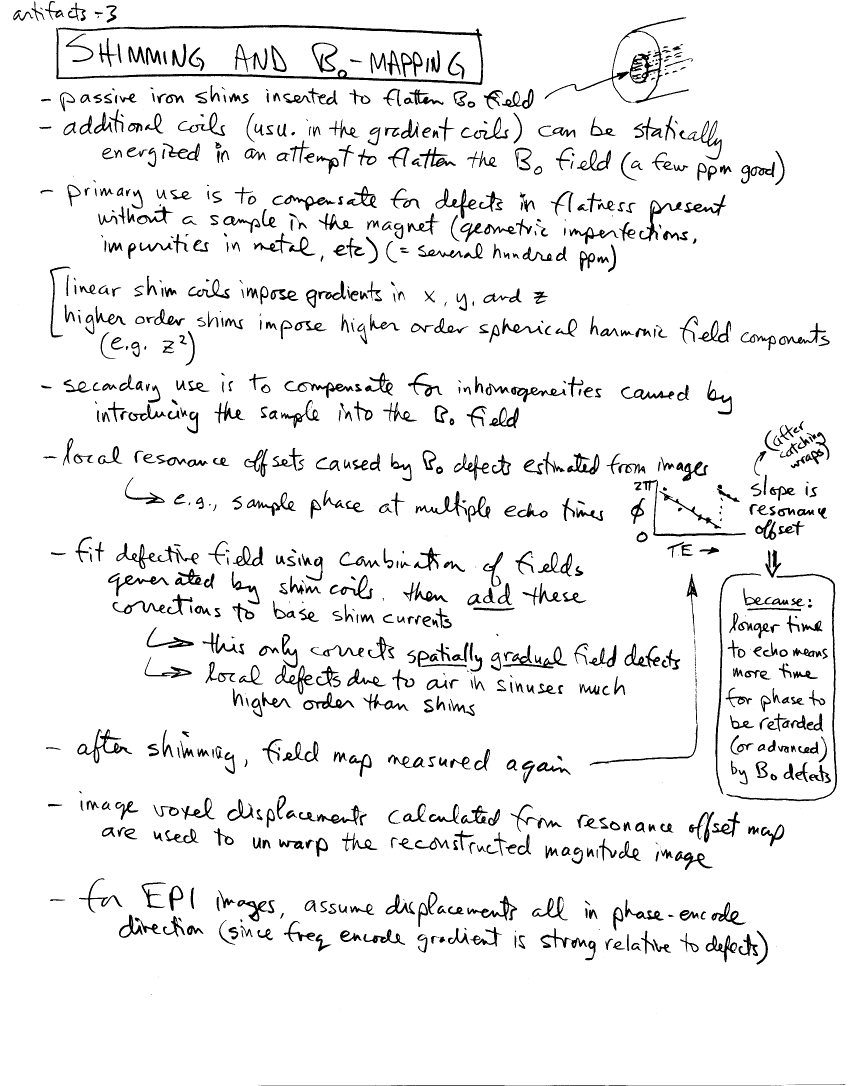 artifacts-3
SHIMMING AND B₀-MAPPING
- passive iron shims inserted to flatten B₀ field
- additional coils (usu. in the gradient coils) can be statically
energized in an attempt to flatten the B₀ field (a few ppm good)
- primary use is to compensate for defects in flatness present
without a sample in the magnet (geometric imperfections,
impurities in metal, etc) (= several hundred ppm)
linear shim coils impose gradients in x, y, and z
higher order shims impose higher order spherical harmonic field components
(e.g. z²)
- secondary use is to compensate for inhomogeneities caused by
introducing the sample into the B₀ field
- local resonance offsets caused by B₀ defects estimated from images
↳ e.g., sample phase at multiple echo times
2π
ϕ
0
TE →
(after
catching
wraps)
slope is
resonance
offset
⇓
because:
longer time
to echo means
more time
for phase to
be retarded
(or advanced)
by B₀ defects
- fit defective field using combination of fields
generated by shim coils, then add these
corrections to base shim currents
↳ this only corrects spatially gradual field defects
↳ local defects due to air in sinuses much
higher order than shims
- after shimming, field map measured again
- image voxel displacements calculated from resonance offset map
are used to unwarp the reconstructed magnitude image
- for EPI images, assume displacements all in phase-encode
direction (since freq encode gradient is strong relative to defects)